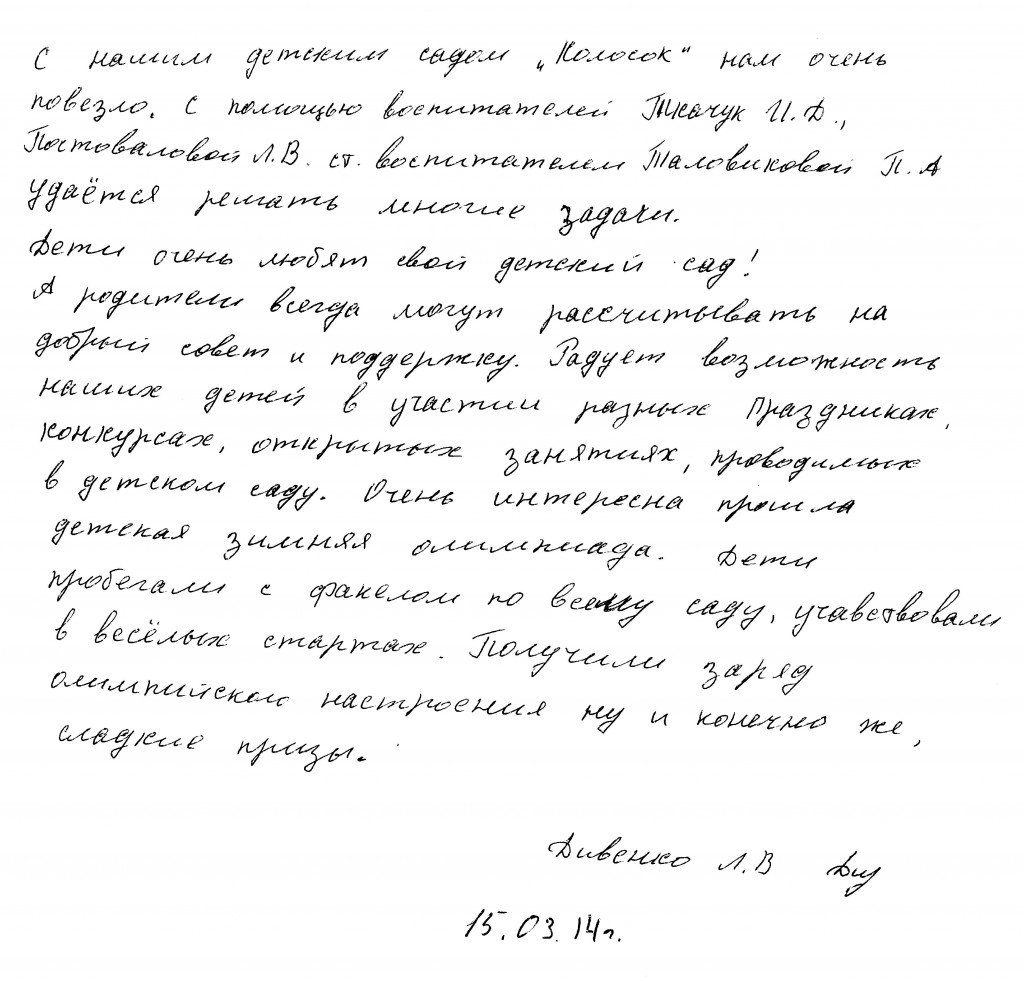 С нашим детским садом „Колосок" нам очень
повезло. С помощью воспитателей Ткачук И.Д.,
Постоваловой Л.В. ст. воспитателем Таловиковой П.А
удаётся решать многие задачи.
Дети очень любят свой детский сад!
А родители всегда могут рассчитывать на
добрый совет и поддержку. Радует возможность
наших детей в участии разных Праздниках,
конкурсах, открытых занятиях, проводимых
в детском саду. Очень интересна прошла
детская зимняя олимпиада. Дети
пробегали с факелом по всему саду, учавствовали
в весёлых стартах. Получили заряд
олимпийского настроения ну и конечно же,
сладкие призы.
Дивенко Л.В
15.03.14г.